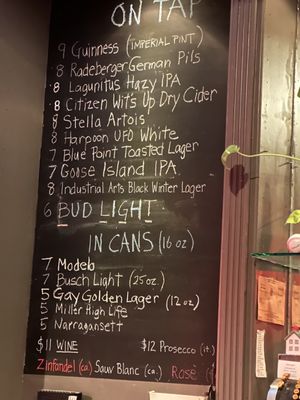 ON TAP
9 Guinness (IMPERIAL PINT)
8 Radeberger German Pils
8 Lagunitus Hazy IPA
8 Citizen Wit's Up Dry Cider
8 Stella Artois
8 Harpoon UFO White
7 Blue Point Toasted Lager
7 Goose Island IPA
8 Industrial Arts Black Winter Lager
6 BUD LIGHT
IN CANS (16 oz)
7 Modelo
7 Busch Light (25oz)
5 Gay Golden Lager (12oz)
5 Miller High Life
5 Narragansett
$11 WINE $12 Prosecco (it.)
Zinfandel (ca) Sauv Blanc (ca.) Rosé